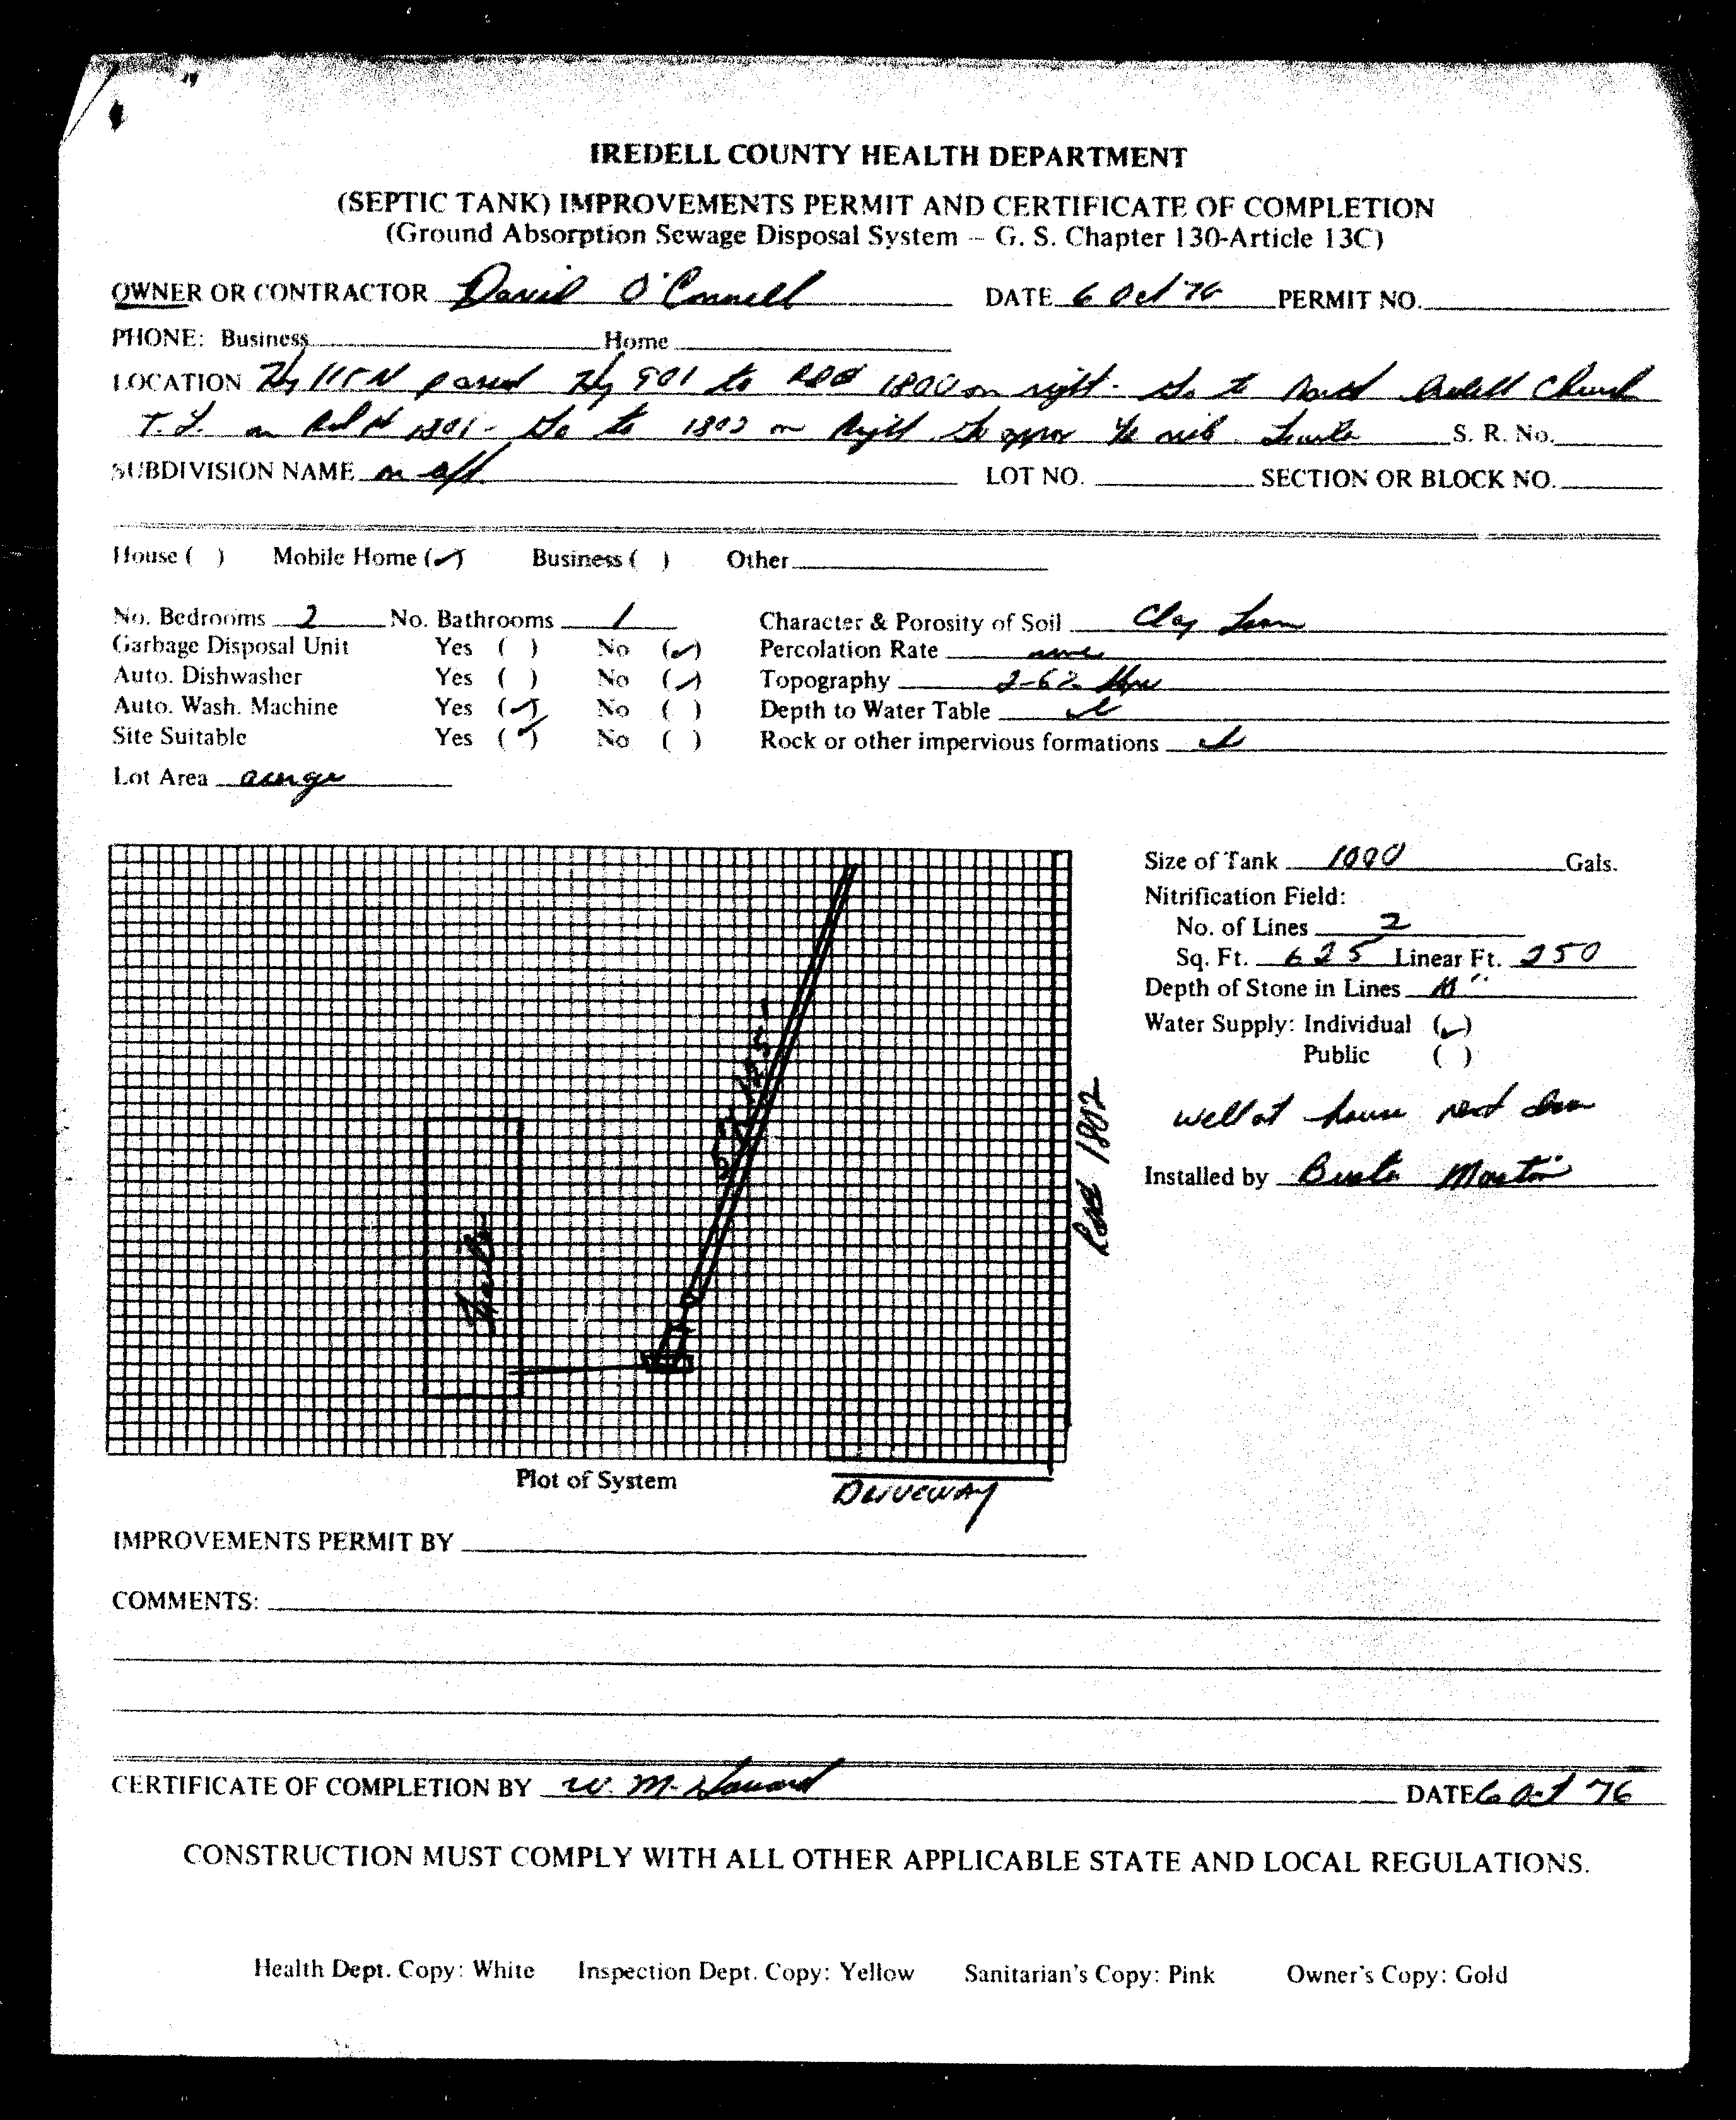 IREDELL COUNTY HEALTH DEPARTMENT
(SEPTIC TANK) IMPROVEMENTS PERMIT AND CERTIFICATE OF COMPLETION
(Ground Absorption Sewage Disposal System – G. S. Chapter 130-Article 13C)
OWNER OR CONTRACTOR David O'Connell DATE 6 Oct 76 PERMIT NO.
PHONE: Business Home
LOCATION Hy 115 N Hy 901 to 1800 on right - Go to Church
T. L. on Rd # 1801 - Go to 1802 on Right Go approx mile S. R. No.
SUBDIVISION NAME on LOT NO. SECTION OR BLOCK NO.
House ( ) Mobile Home (✓) Business ( ) Other
No. Bedrooms 2 No. Bathrooms 1 Character & Porosity of Soil Clay Loam
Garbage Disposal Unit Yes ( ) No (✓) Percolation Rate none
Auto. Dishwasher Yes ( ) No (✓) Topography 2-6% slope
Auto. Wash. Machine Yes (✓) No ( ) Depth to Water Table
Site Suitable Yes (✓) No ( ) Rock or other impervious formations
Lot Area acreage
Size of Tank 1000 Gals.
Nitrification Field:
No. of Lines 2
Sq. Ft. 625 Linear Ft. 250
Depth of Stone in Lines
Water Supply: Individual (✓)
Public ( )
well at house next door
Installed by Martin
125
Road 1802
Plot of System
DRIVEWAY
IMPROVEMENTS PERMIT BY
COMMENTS:
CERTIFICATE OF COMPLETION BY W. M. Howard DATE 6 Oct 76
CONSTRUCTION MUST COMPLY WITH ALL OTHER APPLICABLE STATE AND LOCAL REGULATIONS.
Health Dept. Copy: White Inspection Dept. Copy: Yellow Sanitarian's Copy: Pink Owner's Copy: Gold